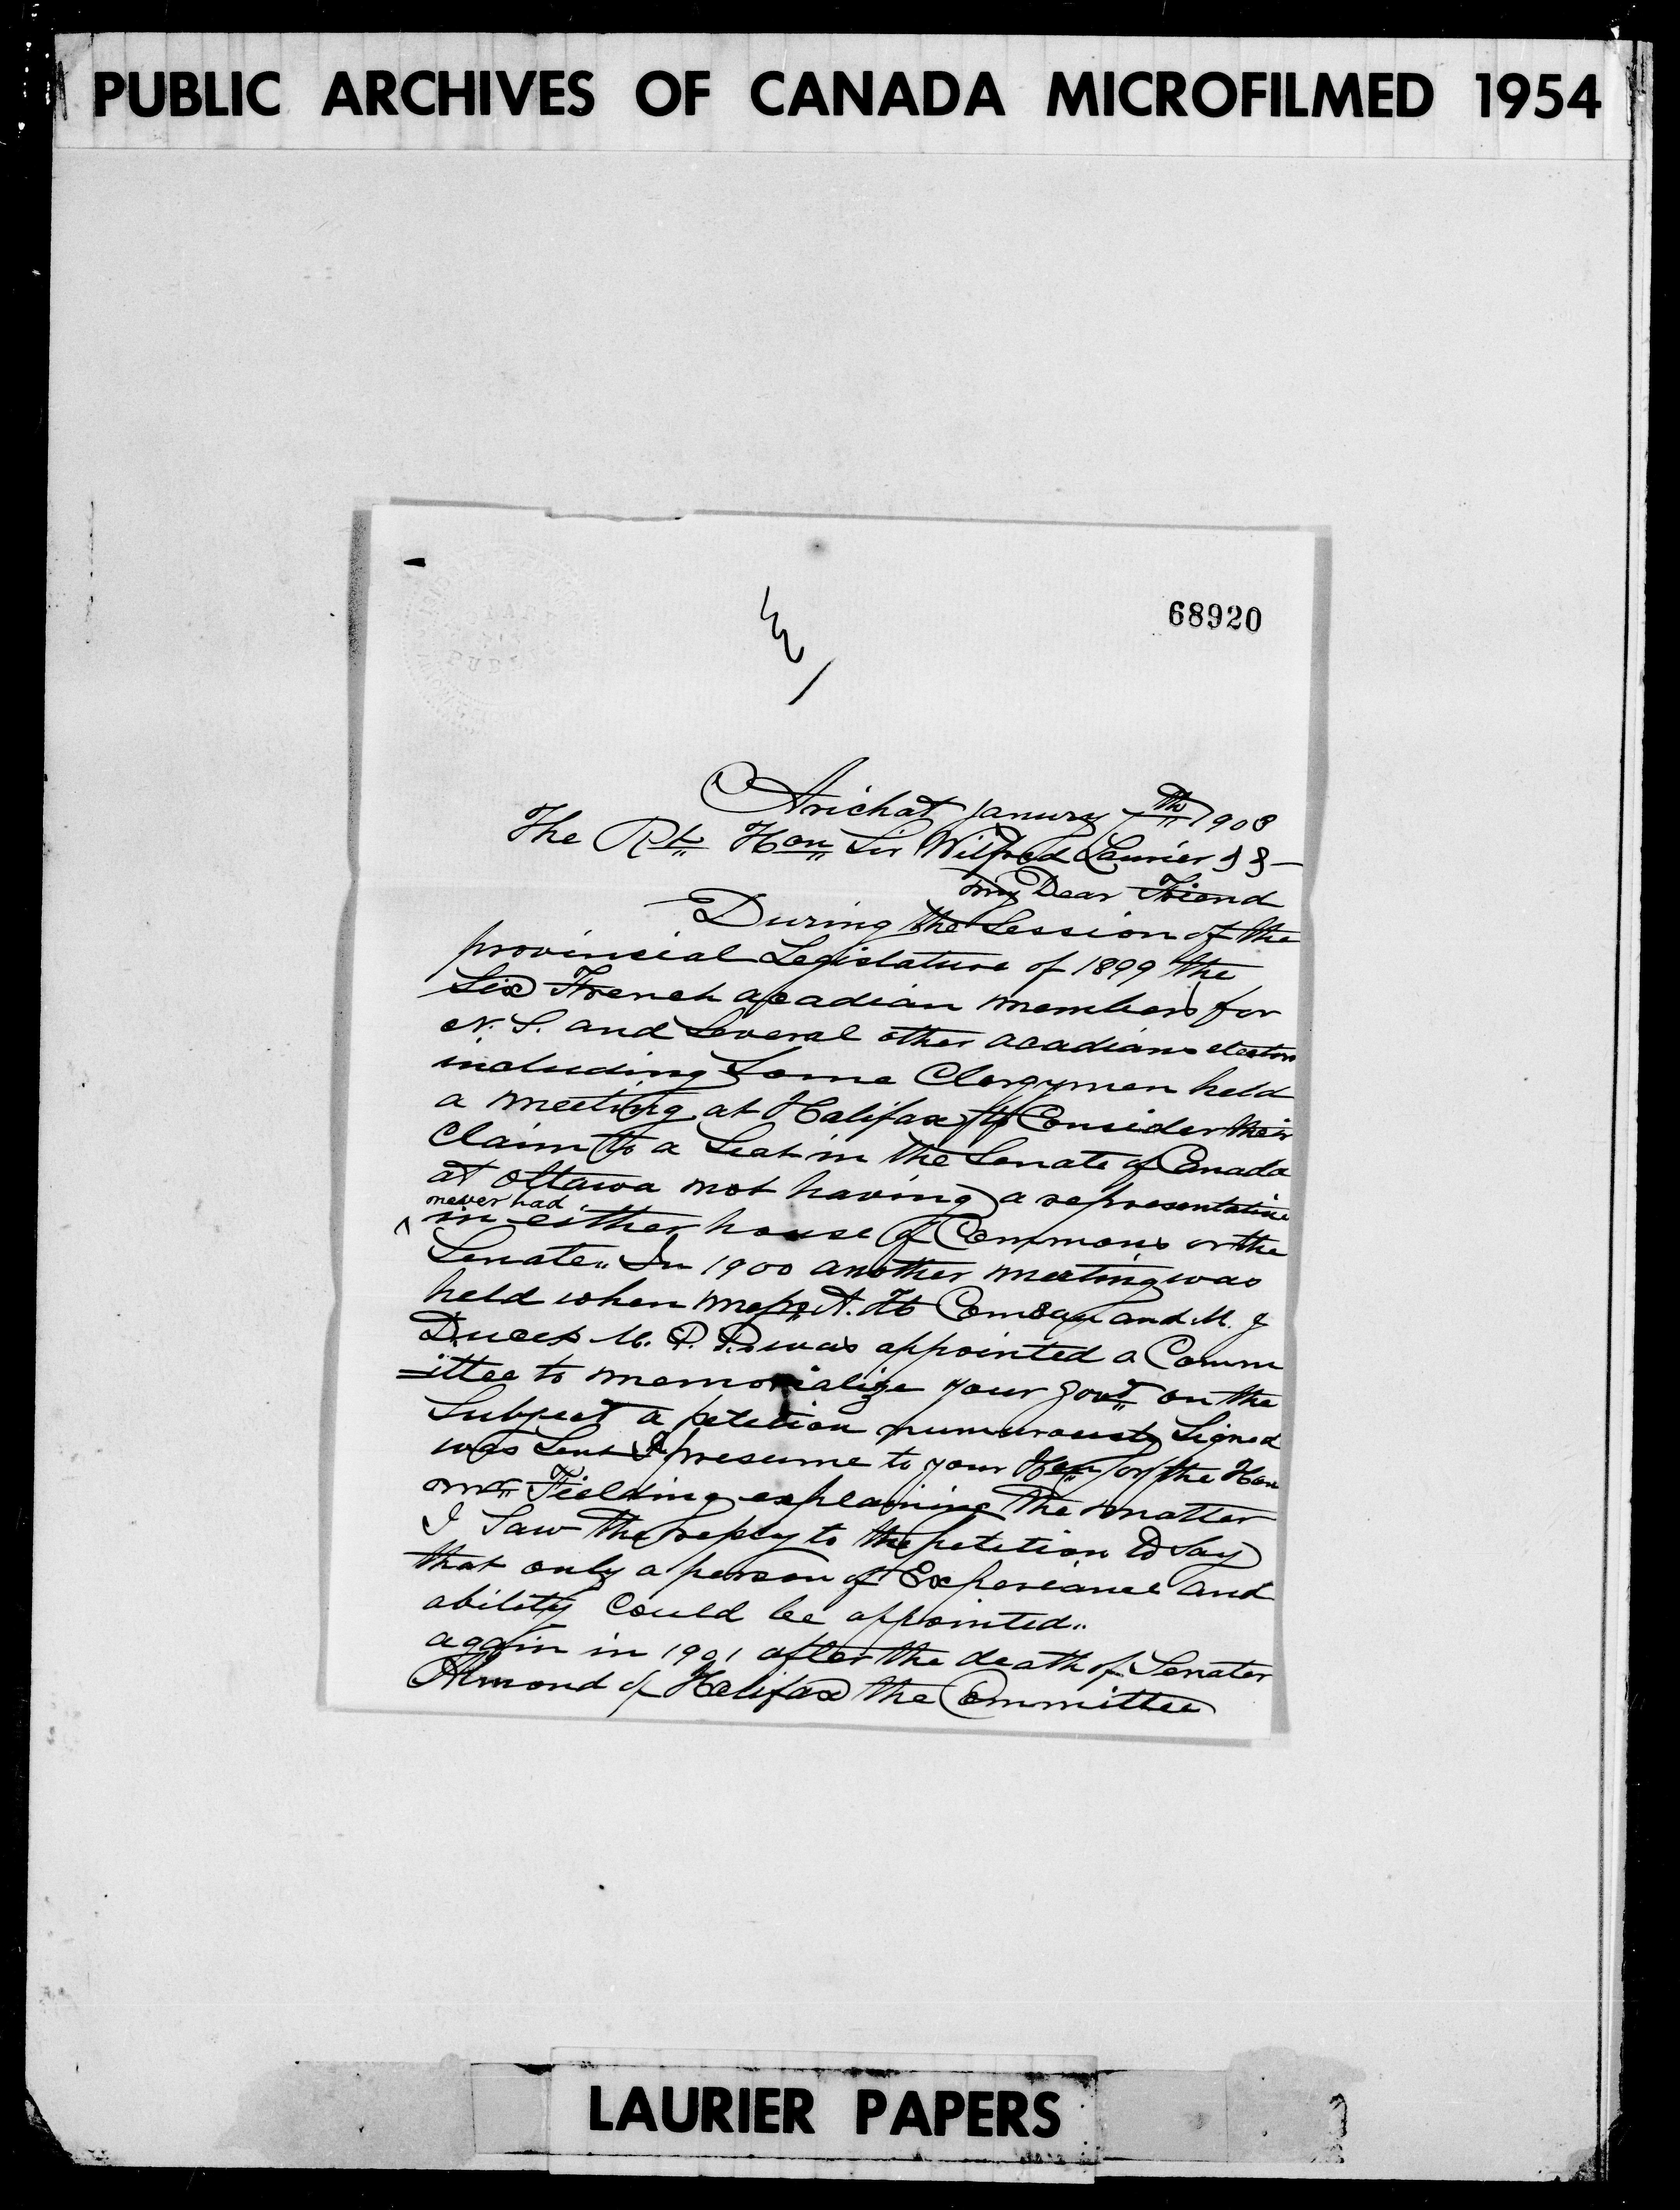 PUBLIC ARCHIVES OF CANADA MICROFILMED 1954
68920
Arichat Janury 7th 1903
The Rt Hon Sir Wilfred Laurier
My Dear Friend
During the Session of the
provincial Legislature of 1899 the
Six French acadian members for
N. S. and Several other acadians electors
including Some Clergymen held
a meeting at Halifax to Consider their
Claim to a Seat in the Senate of Canada
at Ottawa not having a representative
never had
^ in either house of Commons or the
Senate„ In 1900 another meeting was
held when messrs A. H. Comeau and M. J
Doucet M. P. P. was appointed a Comm
=ittee to memorialize your Govt on the
Subject a petition numerously Signed
was Sent I presume to your Hon or the Hon
mr Fielding explaining The matter
I Saw the reply to the petition to Say
that only a person of Experiance and
ability Could be appointed„
again in 1901 after the death of Senater
Almond of Halifax the Committee
LAURIER PAPERS